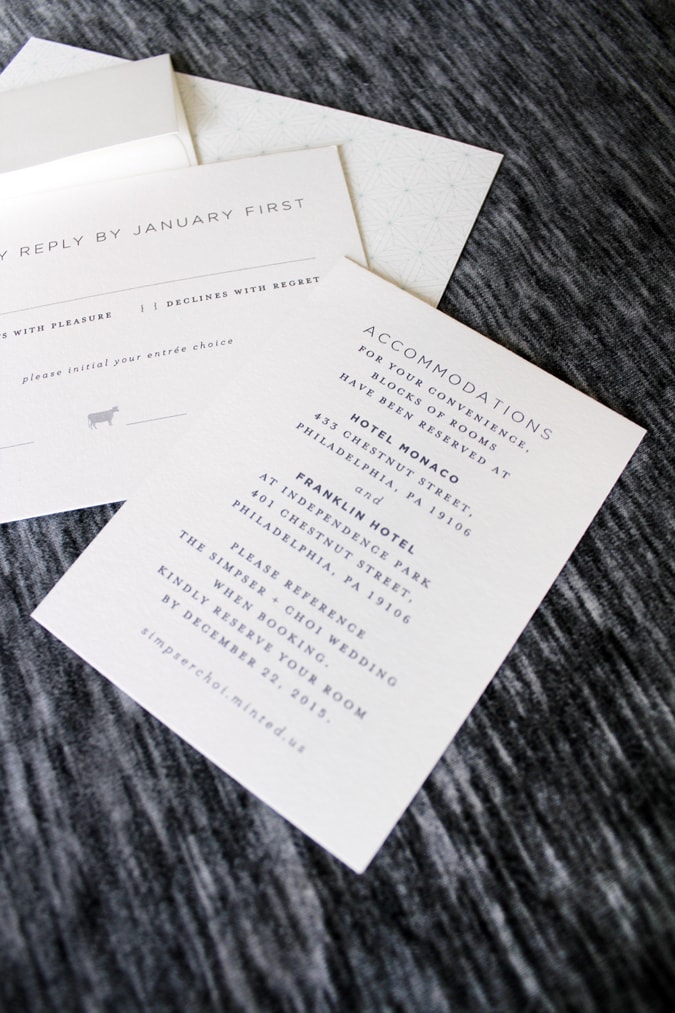 Y REPLY BY JANUARY FIRST
S WITH PLEASURE
} } DECLINES WITH REGRET
please initial your entrée choice
ACCOMMODATIONS
FOR YOUR CONVENIENCE,
BLOCKS OF ROOMS
HAVE BEEN RESERVED AT
HOTEL MONACO
433 CHESTNUT STREET,
PHILADELPHIA, PA 19106
and
FRANKLIN HOTEL
AT INDEPENDENCE PARK
401 CHESTNUT STREET,
PHILADELPHIA, PA 19106
PLEASE REFERENCE
THE SIMPSER + CHOI WEDDING
WHEN BOOKING.
KINDLY RESERVE YOUR ROOM
BY DECEMBER 22, 2015.
simpserchoi.minted.us